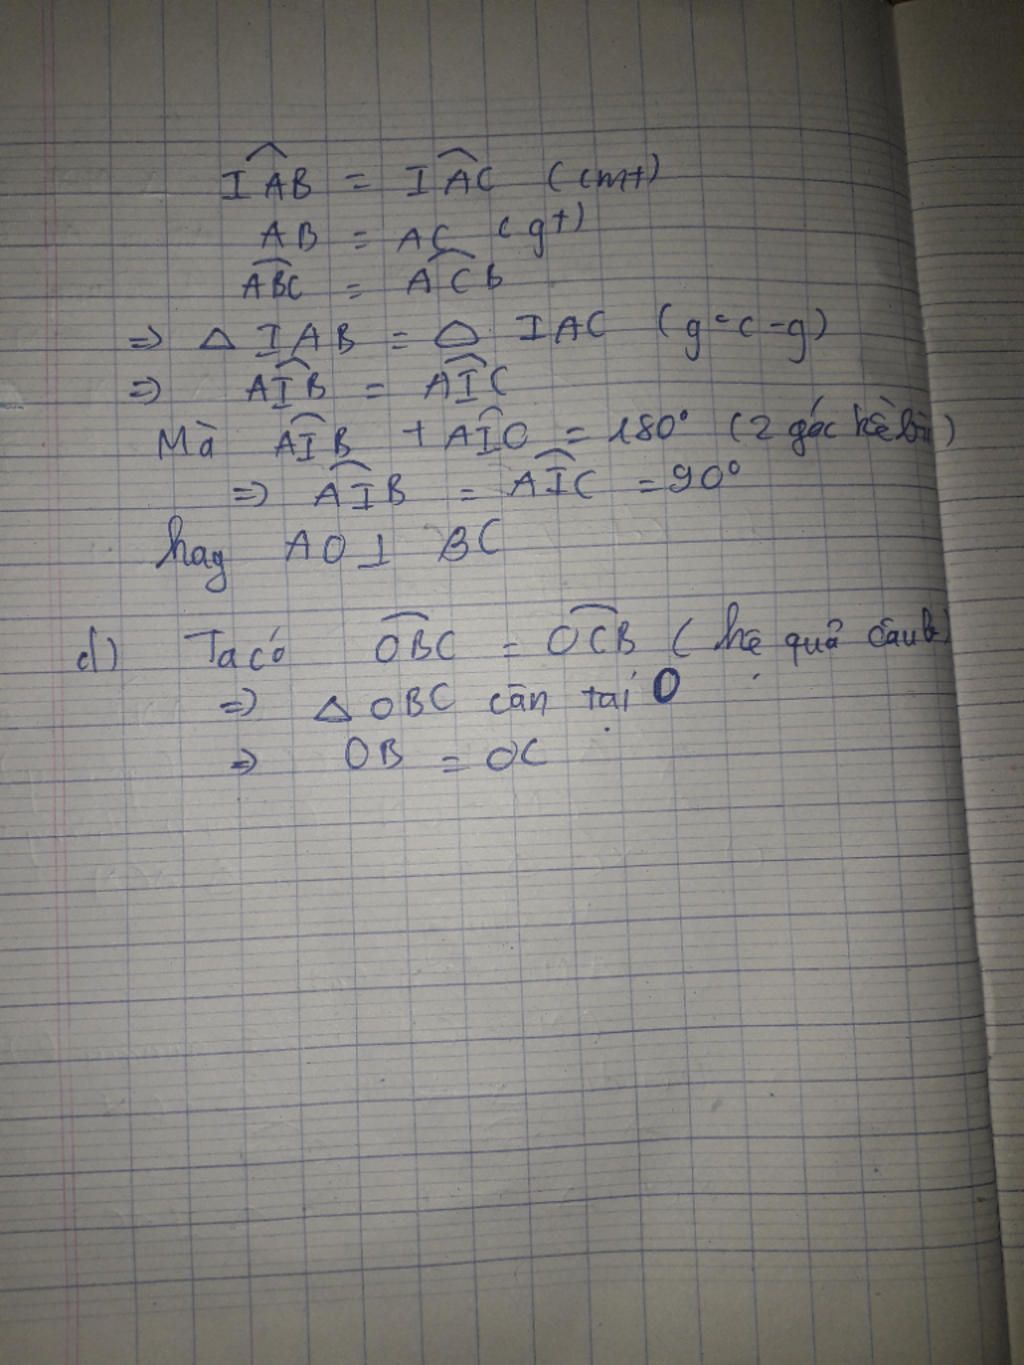 IAB = IAC (cmt)
AB = AC (gt)
ABC = ACB
=> △ IAB = △ IAC (g-c-g)
=> AIB = AIC
Mà AIB + AIC = 180° (2 góc kề bù)
=> AIB = AIC = 90°
hay AO ⊥ BC
d) Ta có OBC = OCB (hệ quả câu b)
=> △ OBC cân tại O
=> OB = OC